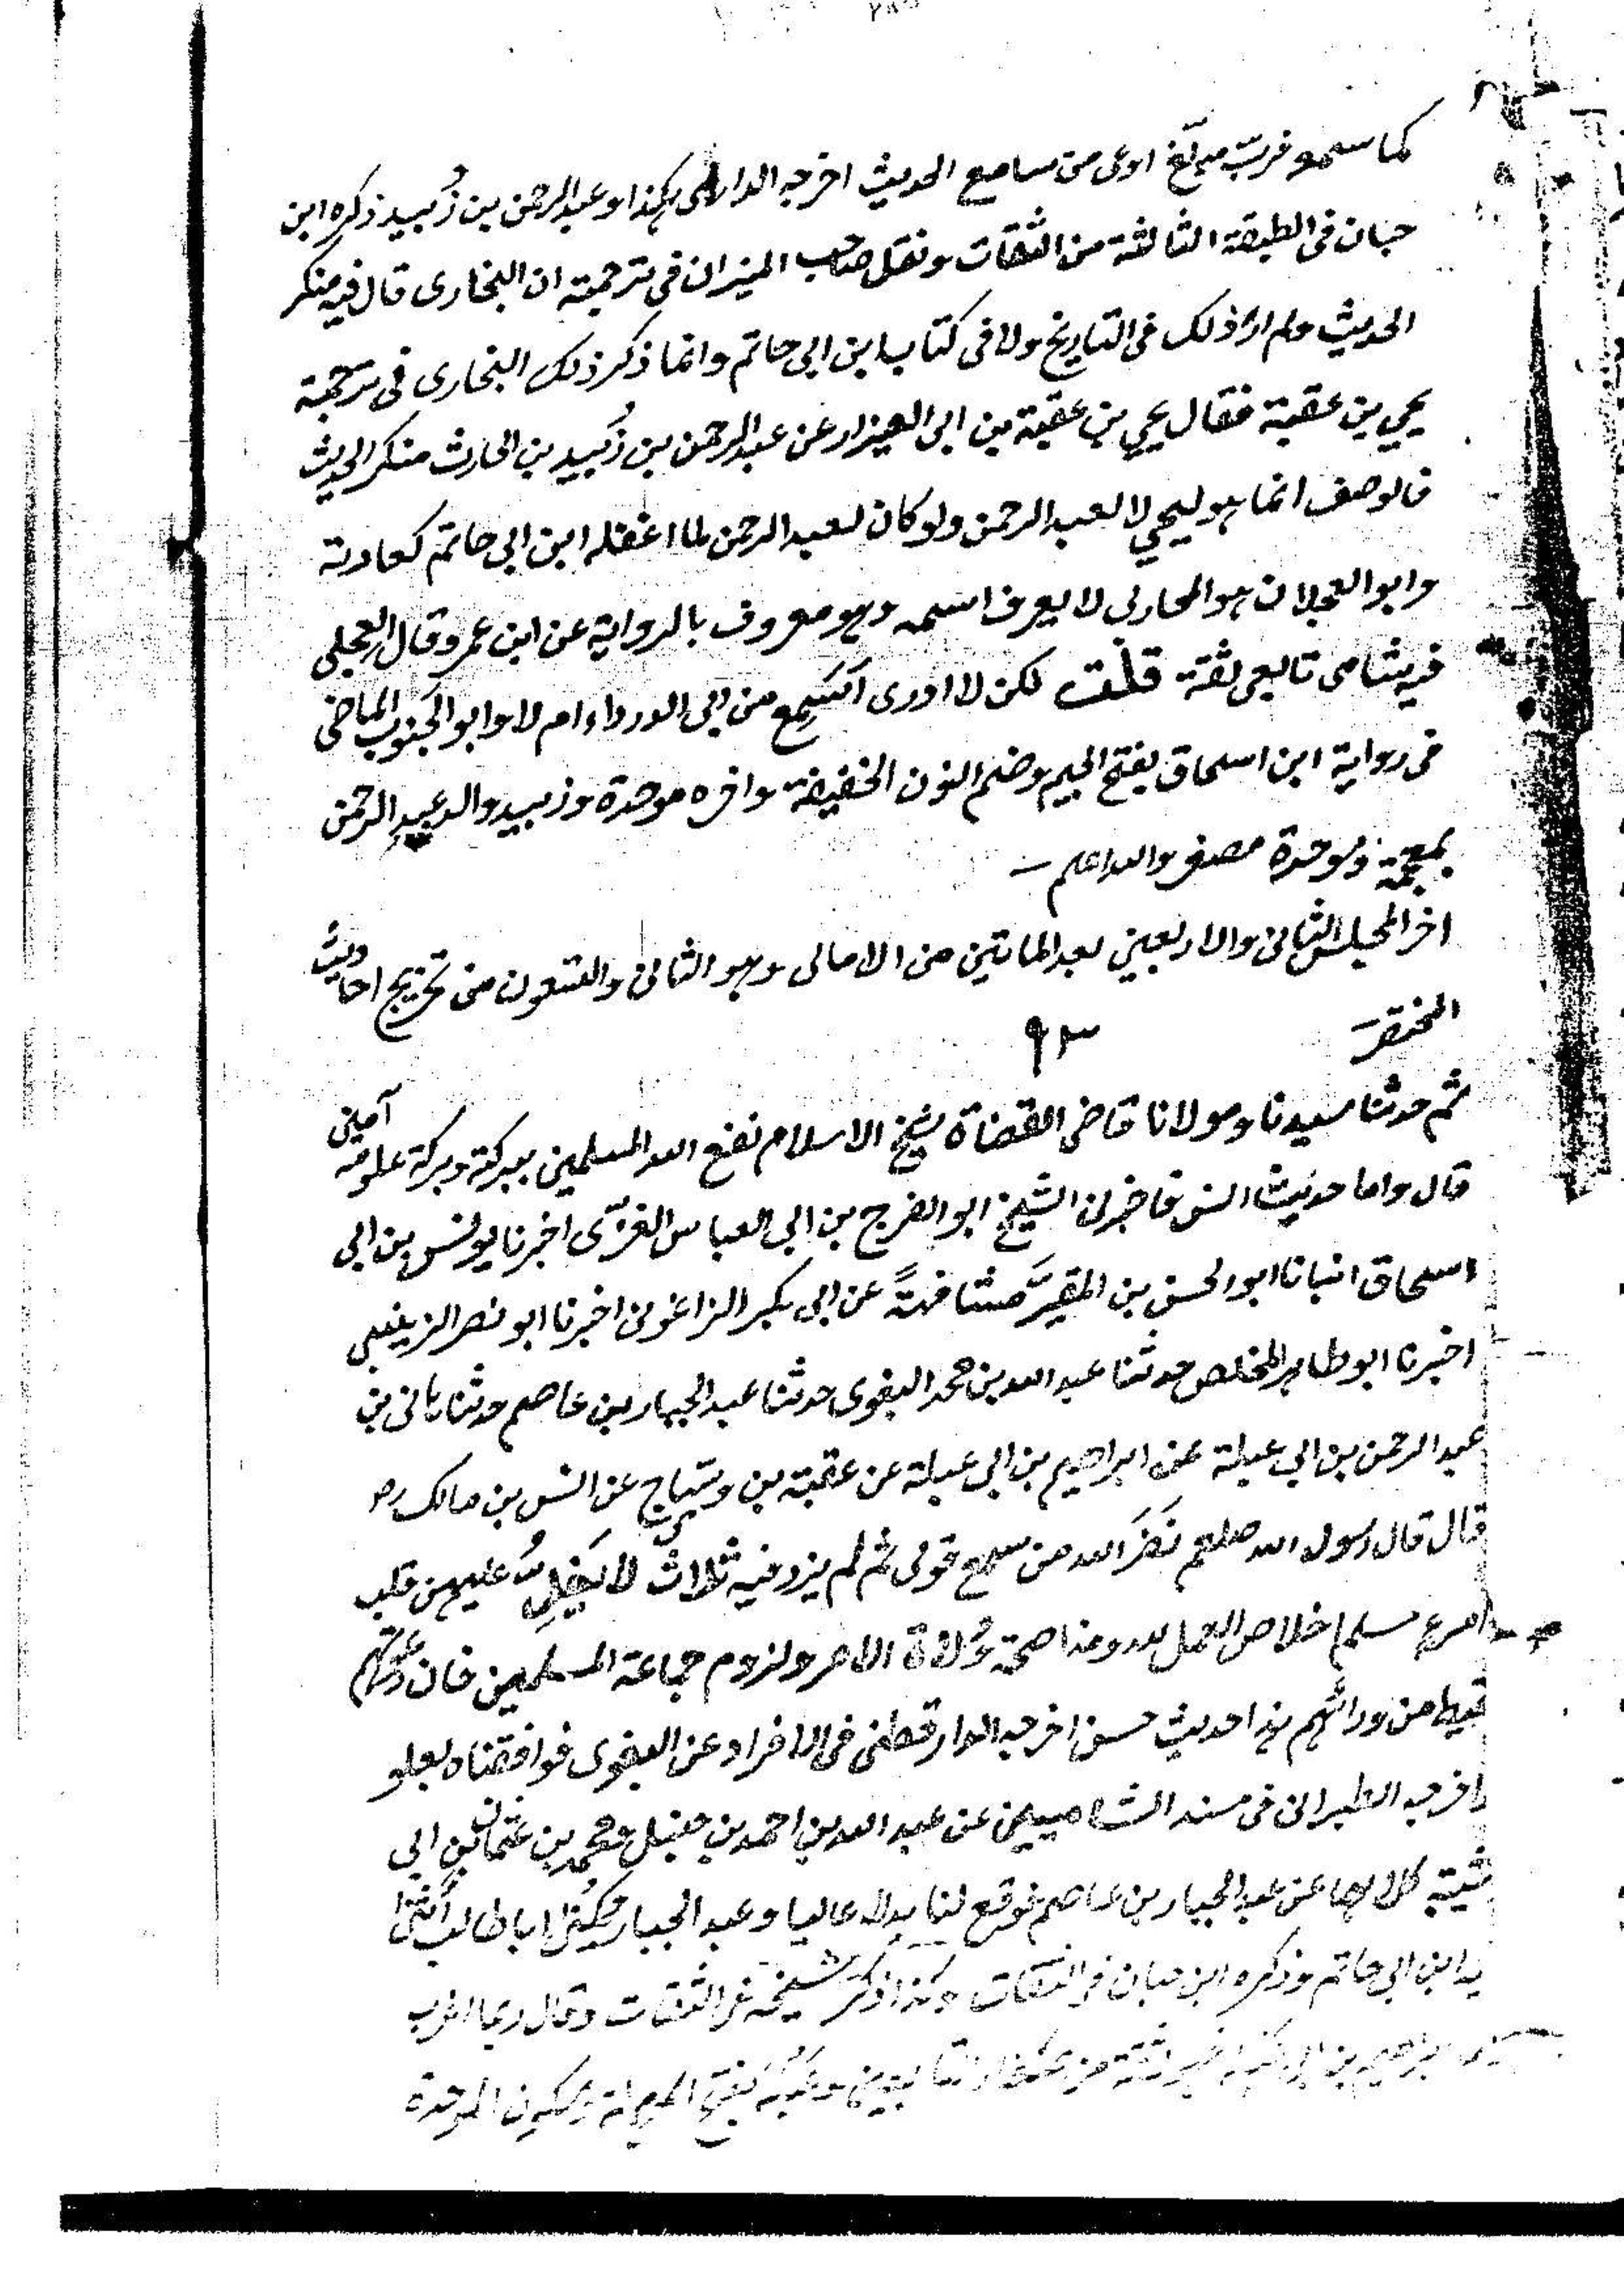 كما سمعه فرب مبلغ اوعى من سامع الحديث اخرجه الدارمى هكذا وعبد الرحمن بن زُبيد ذكره ابن
حبان فى الطبقة الثالثة من الثقات ونقل صاحب الميزان فى ترجمته ان البخارى قال فيه منكر
الحديث ولم ار ذلك فى التاريخ ولا فى كتاب ابن ابى حاتم وانما ذكر ذلك البخارى فى ترجمة
يحيى بن عقبة فقال يحيى بن عقبة بن ابى العيزار عن عبد الرحمن بن زُبيد بن الحارث منكر الحديث
فالوصف انما هو ليحيى لا لعبد الرحمن ولو كان لعبد الرحمن لما اغفله ابن ابى حاتم كعادته
وابو العجلان هو المحاربى لا يعرف اسمه وهو معروف بالرواية عن ابن عمر وقال العجلى
فيه شامى تابعى ثقة قلت لكن لا ادرى اسمع من ابى الدرداء ام لا وابو الجنوب الماضى
فى رواية ابن اسحاق بفتح الجيم وضم النون الخفيفة واخره موحدة وزبيد والد عبد الرحمن
بمعجمة وموحدة مصغر والله اعلم
اخر المجلس الثانى والاربعين بعد الماتين من الامالى وهو الثانى والتسعون من تخريج احاديث
المختصر
٩٣
ثم حدثنا سيدنا ومولانا قاضى القضاة شيخ الاسلام نفع الله المسلمين ببركته وبركة علومه آمين
قال واما حديث انس فاخبرنى الشيخ ابو الفرج بن ابى العباس الغزى اخبرنا يونس بن ابى
اسحاق انبانا ابو الحسن بن المقيَّر مشافهةً عن ابى بكر الزاغونى اخبرنا ابو نصر الزينبى
اخبرنا ابو طاهر المخلص حدثنا عبد الله بن محمد البغوى حدثنا عبد الجبار بن عاصم حدثنا هانى بن
عبد الرحمن بن ابى عبلة عن ابراهيم بن ابى عبلة عن عقبة بن وساج عن انس بن مالك رض
قال قال رسول الله صلعم نضر الله من سمع قولى ثم لم يزد فيه ثلاث لا يَغِلُّ عليهن قلب
امرء مسلم اخلاص العمل لله ومناصحة وُلاة الامر ولزوم جماعة المسلمين فان دعوتهم
تحيط من ورائهم هذا حديث حسن اخرجه الدارقطنى فى الافراد عن البغوى فوافقناه بعلو
واخرجه الطبرانى فى مسند الشاميين عن عبد الله بن احمد بن حنبل ومحمد بن عثمان بن ابى
شيبة كلاهما عن عبد الجبار بن عاصم فوقع لنا بدلا عاليا وعبد الجبار يكنى ابا طالب اثنى
ابن ابى حاتم وذكره ابن حبان فى الثقات وكذا ذكر شيخه فى الثقات وقال ربما اغرب
ابراهيم بن ابى عبلة ثقة من التابعين وعبلة بفتح المهملة وسكون الموحدة